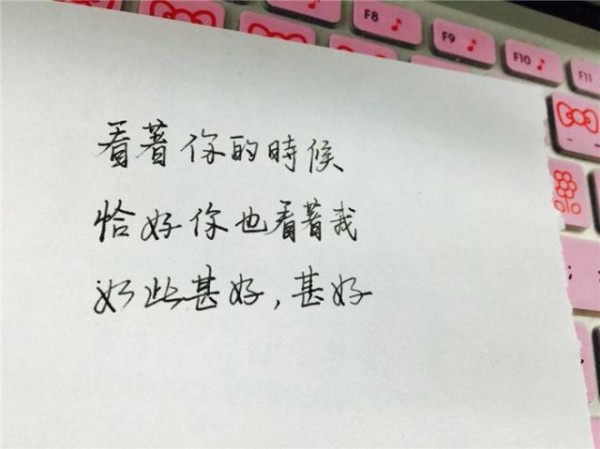 F8 F9 F10 F11
看著你的時候
恰好你也看著我
如此甚好,甚好
;